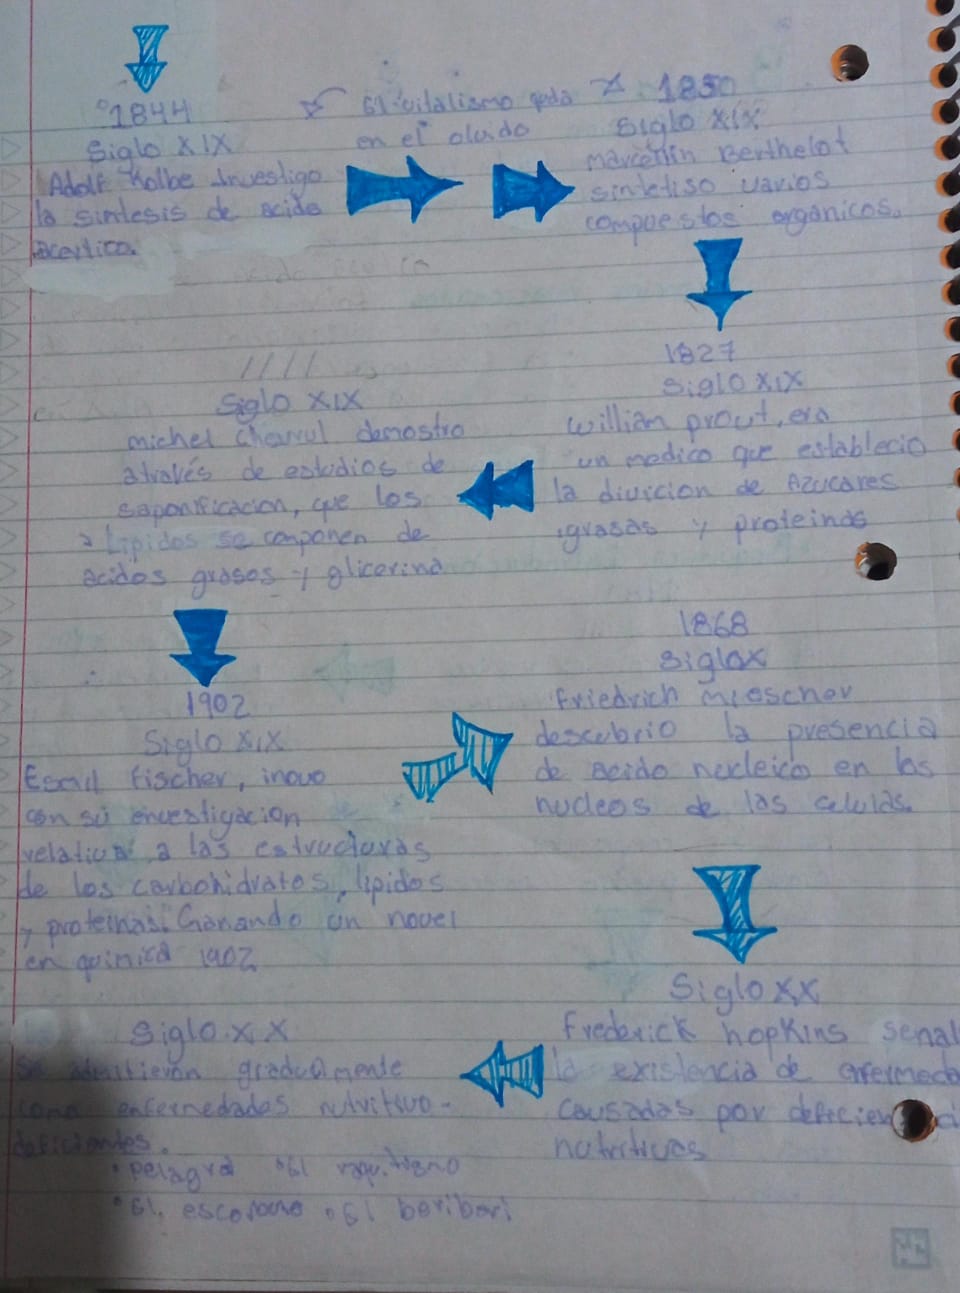 1844
Siglo XIX
Adolf Kolbe Investigo
la sintesis de acido
acertico.
El vitalismo queda
en el olvido
1850
Siglo XIX
marcenlin Berthelot
sintetiso varios
compuestos organicos.
1827
Siglo XIX
Willian prout, era
un medico que establecio
la divicion de Azucares
grasas y proteinas
////
Siglo XIX
michel Chevrul demostro
através de estudios de
saponificacion, que los
Lipidos se componen de
acidos grasos y glicerina
1902
Siglo XIX
Esmil Fischer, inovo
con su envestigacion
relativa a las estructuras
de los carbohidratos, lipidos
y proteinas. Ganando un novel
en quimica 1902
1868
Siglox
Friedrich miescher
descubrio la presencia
de acido nucleico en los
nucleos de las celulas.
Siglo XX
Frederick hopkins senal
la existencia de
causadas por deficien ci
nutritivas
Siglo XX
Se admitieron gradualmente
como enfernedades nutritivo-
deficientes.
• pelagra • El raquitismo
• El. escorbuto • El beriberi